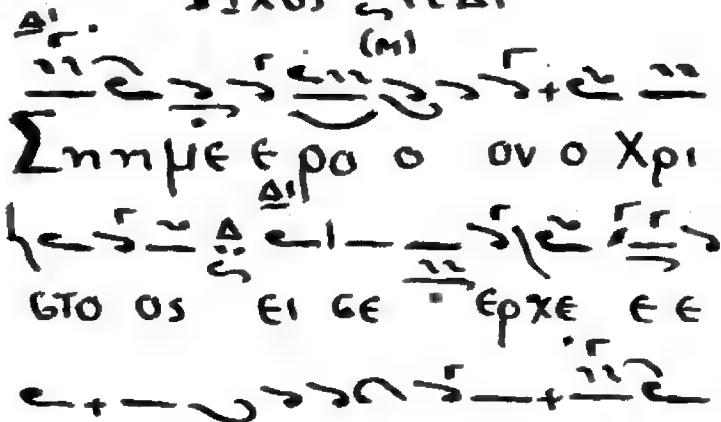 Δι
(Μ)
Σηημε ε ρο ο ον ο Χρι
Δ Δι
στο ος ει σε ερχε ε ε